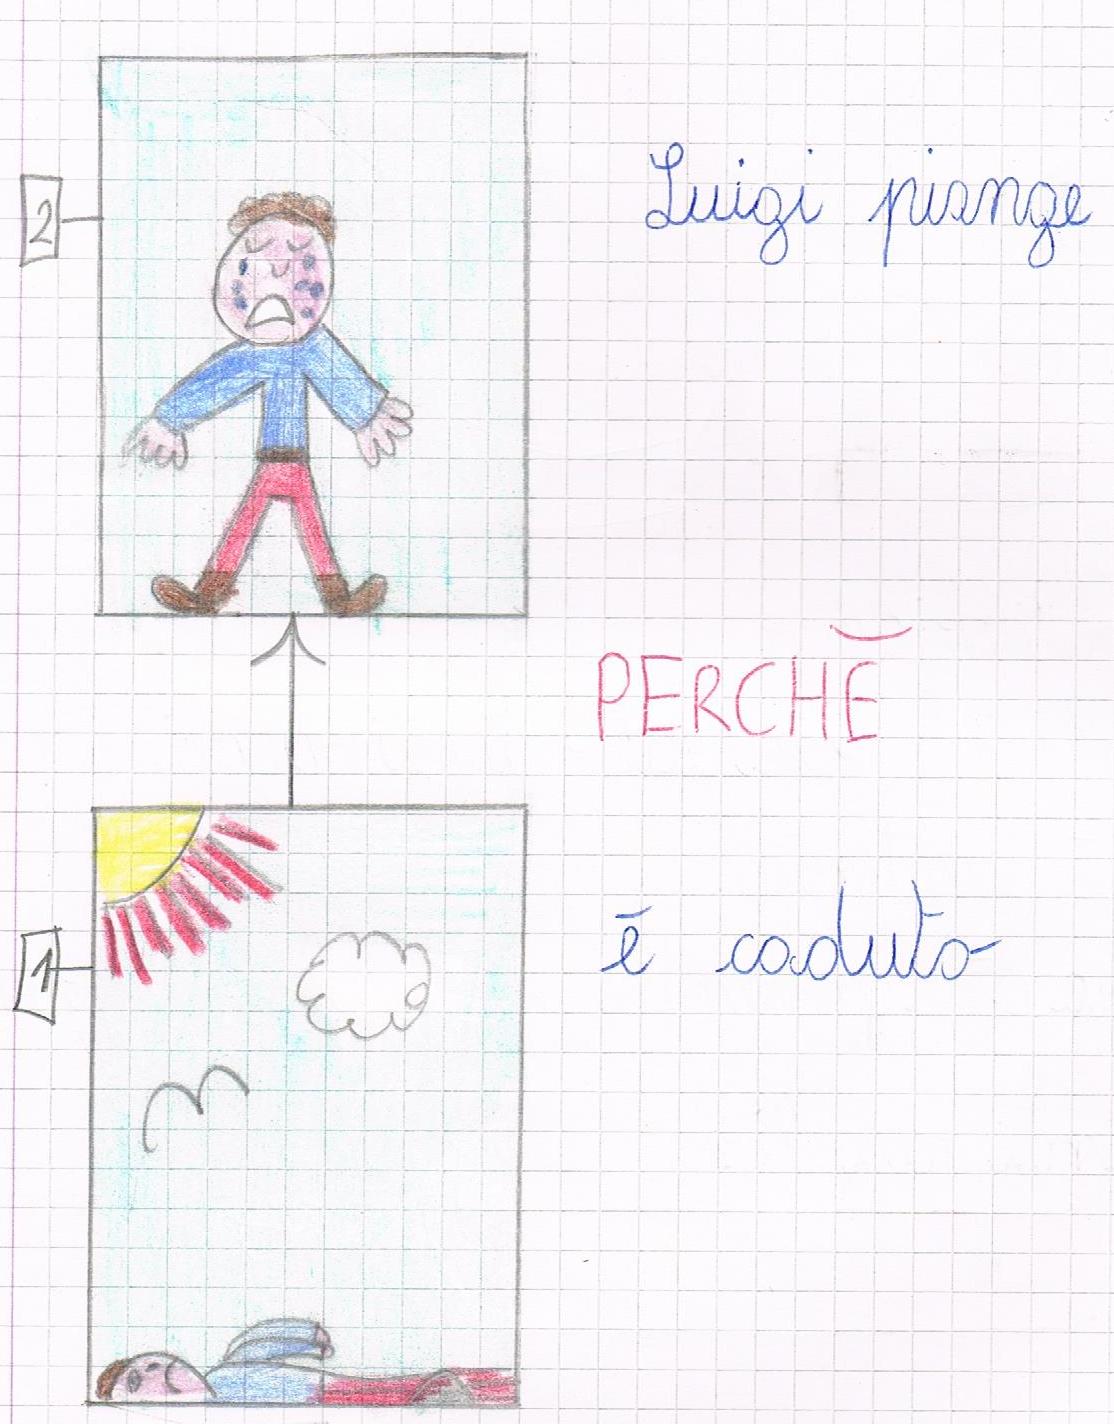 2
Luigi piange
PERCHÉ
1
è caduto